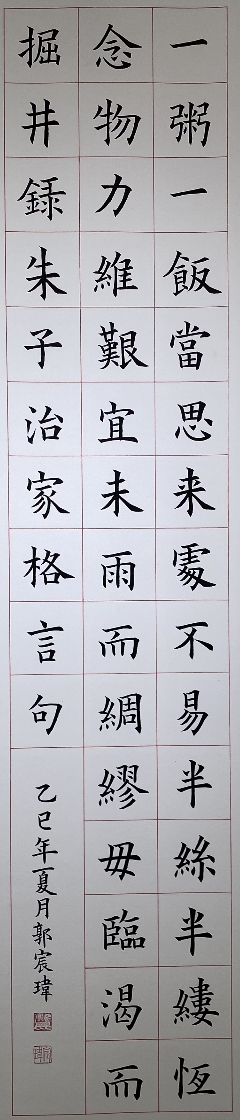 一粥一飯當思来處不易半絲半縷恆
念物力維艱宜未雨而綢繆毋臨渴而
掘井錄朱子治家格言句
乙巳年夏月郭宸瑋